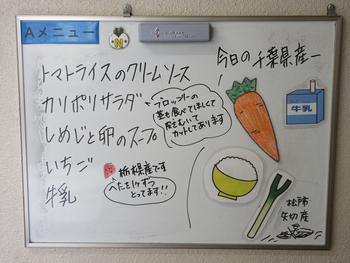 Aメニュー
N
今日の千葉県産
トマトライスのクリームソース
カリポリサラダ
ブロッコリーの
茎も食べてほしくて
皮をむいて
カットしてあります
しめじと卵のスープ
いちご
栃木県産です
へたを1ケずつ
とってます!!
牛乳
牛乳
松戸市
矢切産